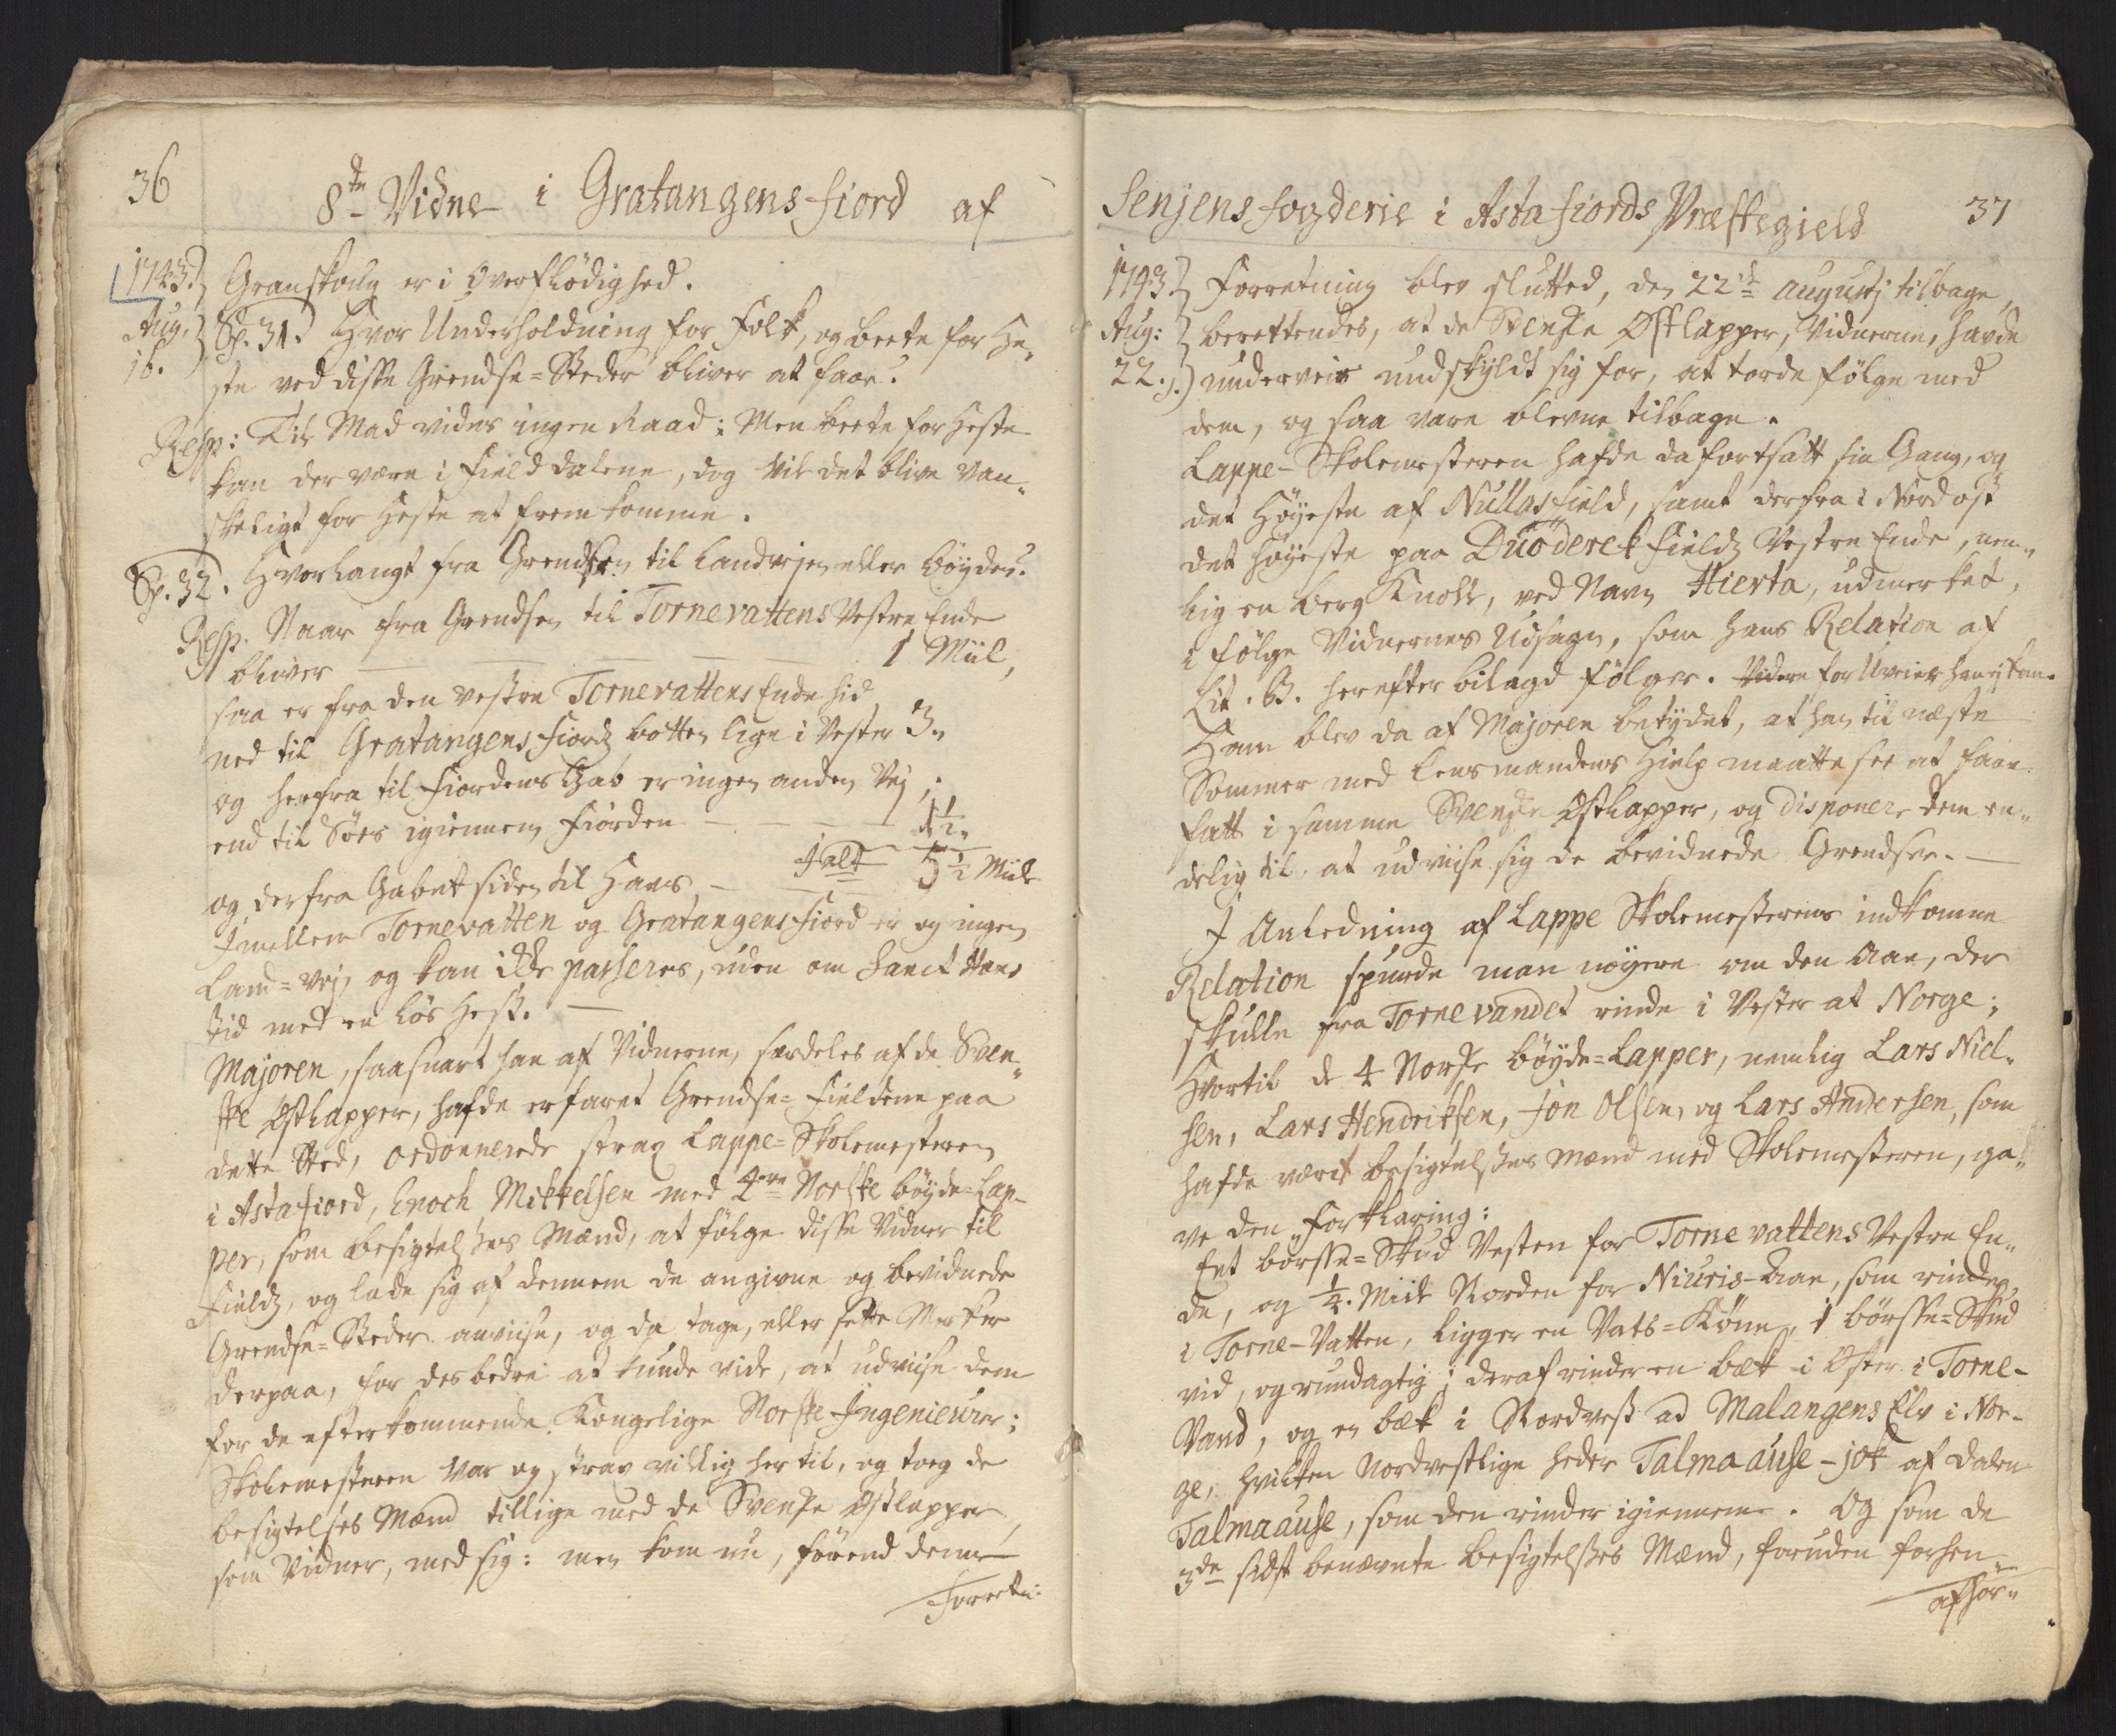 36
8de Vidne i Gratangens fiord af
1743. Granskoug er i Overflödighed.
Aug. Sp. 31. Hvor Underholdning for Folk, og beete for He„
16. ste ved disse Grendse=Steder bliver at faae?
Resp: Til Mad vides ingen Raad: Men beete for Heste
kan der være i Field dalene, dog vil det blive van„
skeligt for Heste at fremkomme.
Sp. 32. Hvorlangt fra Grendsen til Landvejen eller bøyder?
Resp. Naar fra Grendsen til Tornevattens Vestre Ende
bliver — — — 1 Miil,
saa er fra den vestre Tornevattens Ende hid
ned til Gratangens fiords botten lige i Vester 3„
og herfra til Fiordens Gab er ingen anden Vej,
end til Søes igiennem Fiorden — — 1½„
og derfra Gabet siden til Havs — Jalt 5½ Miil
Jmellem Tornevatten og Gratangens fiord er og ingen
Land=vej, og kan ikke passeres, uden om Sanct Hans
tid med en løs Hest. —
Majoren, saasnart han af Vidnerne, særdeles af de Sven„
ske Østlapper, hafde erfaret Grendse=Fieldene paa
dette Sted, ordonnerede strax Lappe=Skolemesteren
i Astafiord, Enoch Mikkelsen med 4re Norske bøyde=Lap„
per, som besigtelses Mænd, at følge disse Vidner til
Fields, og lade sig af dennem de angivne og bevidnede
Grendse=Steder anviise, og da tage, eller sette Merker
derpaa, for desbedre at kunde vide, at udviise dem
for de efterkommende Kongelige Norske Jngenieurer;
Skolemesteren var og strax villig hertil, og toeg de
besigtelses Mænd tillige med de Svenske Østlapper,
som Vidner, med sig: men kom nu, førend denne
Forretn:
Senjens fogderie i Astafiords Præstegield 37
1743. Forretning blev slutted, den 22de Augustj tilbage,
Aug: berettendes, at de Svenske Østlapper, Vidnerne, havde
22. underveis undskyldt sig for, at torde følge med
dem, og saa vare blevne tilbage.
Lappe-Skolemesteren hafde da fortsatt sin Gang, og
det Høyeste af Nullasfield, samt derfra i Nordost
det høyeste paa Duöderek fields Vestre Ende, nem„
lig en berg Knold, ved Navn Hierta, udmerket,
i følge Vidnernes Udsagn, som hans Relation af
Lit. B. herefter bilagd følger. Videre for Uveier han ej kom.
Ham blev da af Majoren betydet, at han til næste
Sommer med Lensmandens Hielp maatte see at faae
fatt i samme Svenske Østlapper, og disponere dem en„
delig til, at udviise sig de bevidnede Grendser. —
J Anledning af Lappe Skolemesterens indkomne
Relation spurde man nøyere om den Aae, der
skulle fra Tornevandet rinde i Vester at Norge;
Hvortil de 4 Norske bøyde=Lapper, nemlig Lars Niel„
sen, Lars Hendriksen, Jon Olsen, og Lars Andersen, som
hafde værit besigtelses Mænd med Skolemesteren, ga„
ve den Forklaring:
Eet børsse=Skud Vesten for Torne vattens Vestre En„
de, og ¼. Miil Norden for Niuris-Aae, som rinder
i Torne-Vatten, ligger en Vats=Kønn, 1 børsse=Skud
vid, og rundagtig; deraf rinder en bæk i Øster i Torne-
Vand, og en bæk i Nordvest ad Malangens Elv i Nor-
ge, hvilken Nordvestlige heder Talmaause-jok af dalen
Talmaause, som den rinder igiennem. Og som de
3de sidst benævnte besigtelses Mænd, foruden forhen
afhør„